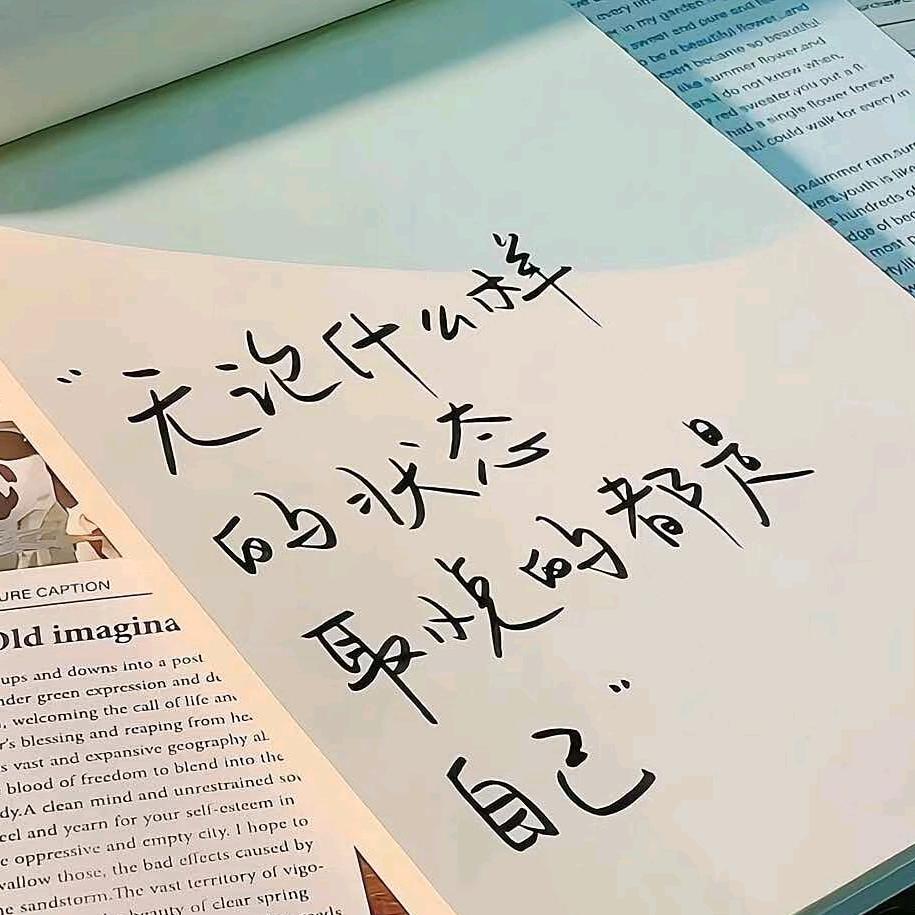 in my garden
sweet and pure and
be a beautiful flower,,and
became so beautiful
like summer flower,and
do not know when,
red sweater,you put a
had a single flower forever
I could walk for every,in
summer rain,
youth is like
hundreds
most
“无论什么样
的状态
取悦的都是
自己”
URE CAPTION
Old imagina
ups and downs into a post
nder green expression and
, welcoming the call of life an
r's blessing and reaping from he
s vast and expansive geography al
blood of freedom to blend into the
dy.A clean mind and unrestrained
and yearn for your self-esteem in
e oppressive and empty city. I hope to
wallow those, the bad effects caused by
sandstorm.The vast territory of vigo-
beauty of clear spring